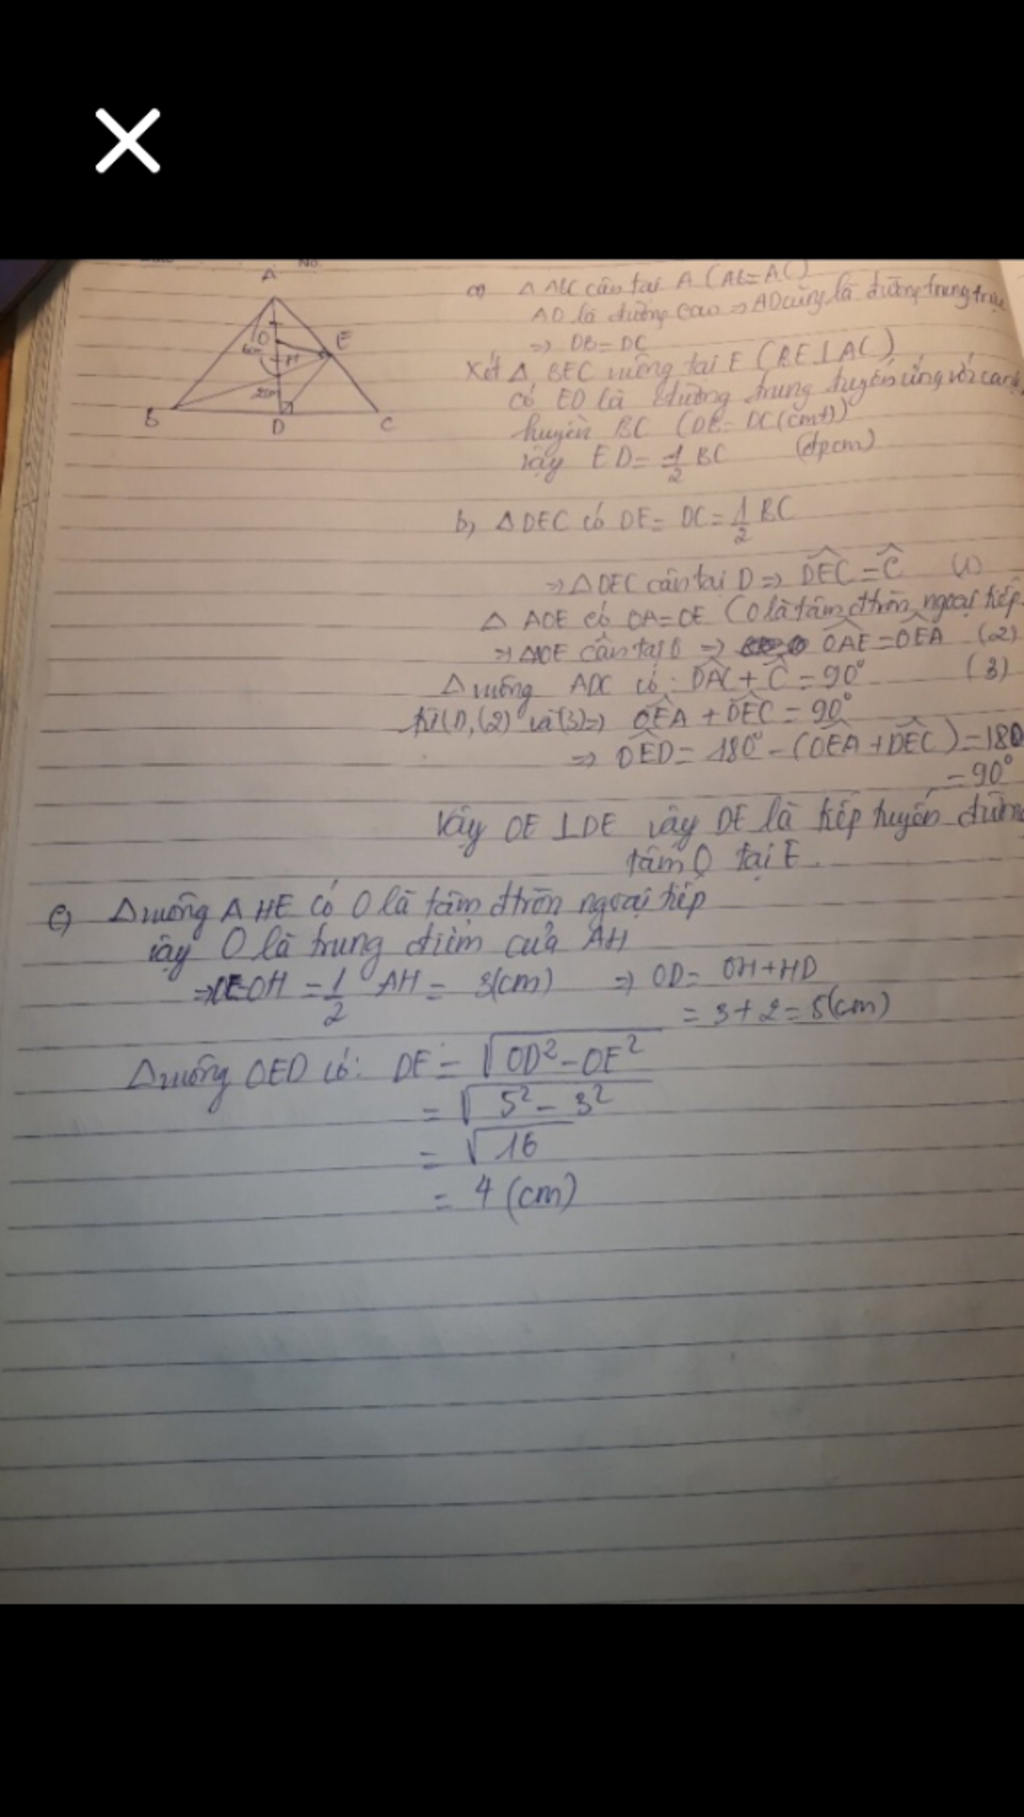 No.
A
O
E
6cm
H
2cm
B
D
C
a) Δ ABC cân tại A (AB=AC)
AD là đường cao => AD cũng là đường trung trực
=> DB = DC
Xét Δ BEC vuông tại E (BE⊥AC)
có ED là đường trung tuyến ứng với cạnh
huyền BC (DB = DC (cmt))
vậy ED = 1/2 BC (đpcm)
b, Δ DEC có DE = DC = 1/2 BC
=> Δ DEC cân tại D => \widehat{DEC} = \widehat{C} (1)
Δ AOE có OA = OE (O là tâm đtròn ngoại tiếp
=> ΔAOE cân tại O => \widehat{OAE} = \widehat{OEA} (2)
Δ vuông ADC có: \widehat{DAC} + \widehat{C} = 90° (3)
từ (1), (2) và (3) => \widehat{OEA} + \widehat{DEC} = 90°
=> \widehat{OED} = 180° - (\widehat{OEA} + \widehat{DEC}) = 180
= 90°
Vậy OE ⊥ DE vậy DE là tiếp tuyến đường
tâm O tại E.
c) Δ vuông AHE có O là tâm đtròn ngoại tiếp
vậy O là trung điểm của AH
=> OE=OH = 1/2 AH = 3(cm) => OD = OH + HD
= 3 + 2 = 5(cm)
Δ vuông OED có: DE = √(OD² - OE²)
= √(5² - 3²)
= √16
= 4 (cm)